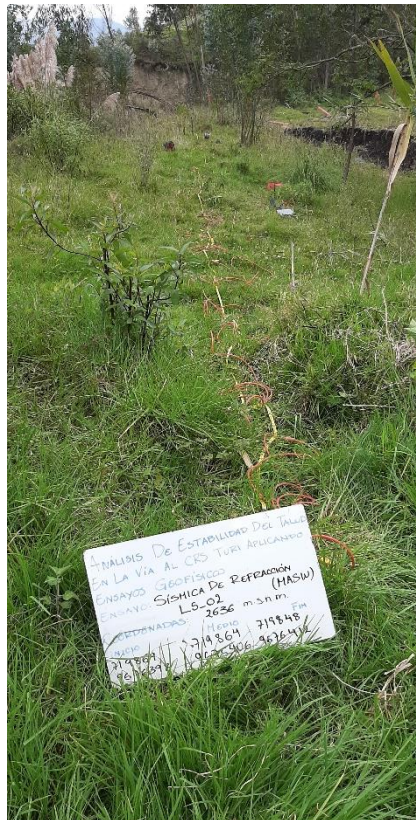 ANÁLISIS DE ESTABILIDAD DEL TALUD
EN LA VÍA AL CRS TURI APLICANDO
ENSAYOS GEOFÍSICOS
ENSAYO: SÍSMICA DE REFRACCIÓN
(MASW)
LS-02
2636 m.s.n.m.
COORDENADAS MEDIO FIN
INICIO 719864 719848